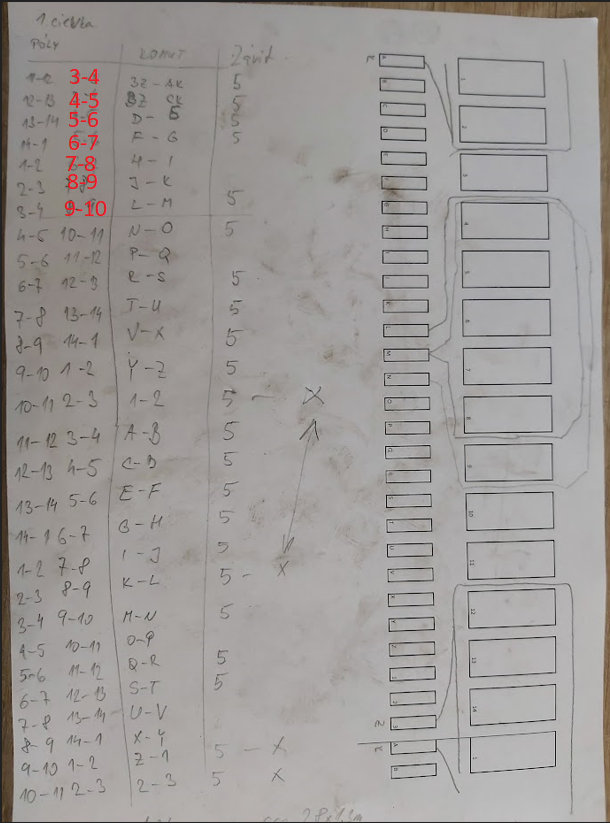 1. cievka
PÓLY KOMUT Závit
11-12 3-4 3Z-AK 5
12-13 4-5 BZ CK 5
13-14 5-6 D-E 5
14-1 6-7 F-G 5
1-2 7-8 H-I
2-3 8-9 J-K
3-4 9-10 L-M 5
4-5 10-11 N-O 5
5-6 11-12 P-Q
6-7 12-3 R-S 5
7-8 13-14 T-U 5
8-9 14-1 V-X 5
9-10 1-2 Y-Z 5
10-11 2-3 1-2 5 - X
11-12 3-4 A-B 5
12-13 4-5 C-D 5
13-14 5-6 E-F 5
14-1 6-7 G-H 5
1-2 7-8 I-J 5
2-3 8-9 K-L 5 - X
3-4 9-10 M-N 5
4-5 10-11 O-P
5-6 11-12 Q-R 5
6-7 12-13 S-T 5
7-8 13-14 U-V
8-9 14-1 X-Y 5 - X
9-10 1-2 Z-1
10-11 2-3 2-3 5 X